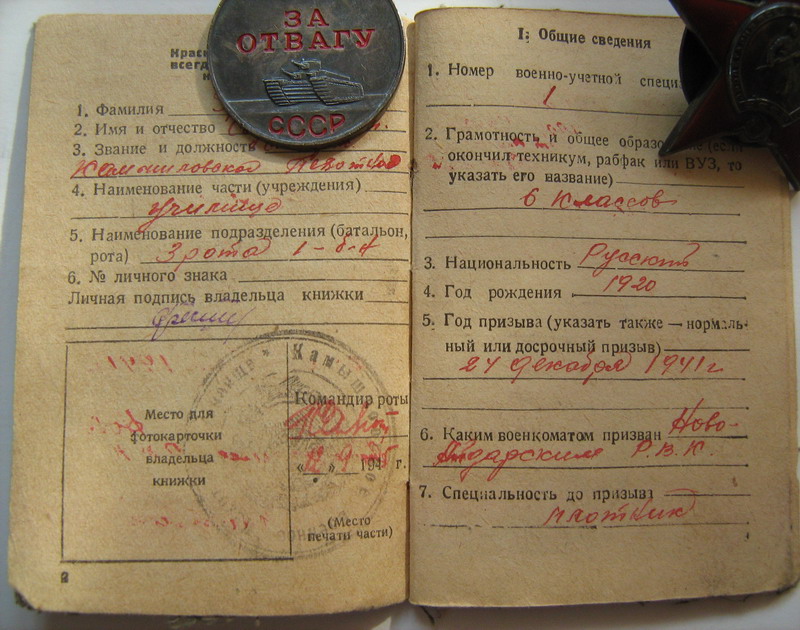 ЗА
ОТВАГУ
СССР
Крас
всегд
1. Фамилия
2. Имя и отчество
3. Звание и должность
4. Наименование части (учреждения)
училище
5. Наименование подразделения (батальон,
рота) 3 рота 1-
6. № личного знака
Личная подпись владельца книжки
Место для
фотокарточки
владельца
книжки
Командир роты
194 г.
(Место
печати части)
2
I. Общие сведения
1. Номер военно-учетной специ
1
2. Грамотность и общее образо (если
окончил техникум, рабфак или ВУЗ, то
указать его название)
6 классов
3. Национальность Русский
4. Год рождения 1920
5. Год призыва (указать также — нормаль-
ный или досрочный призыв)
24 декабря 1941 г
6. Каким военкоматом призван Ново-
Айдарским Р.В.К.
7. Специальность до призыва
плотник